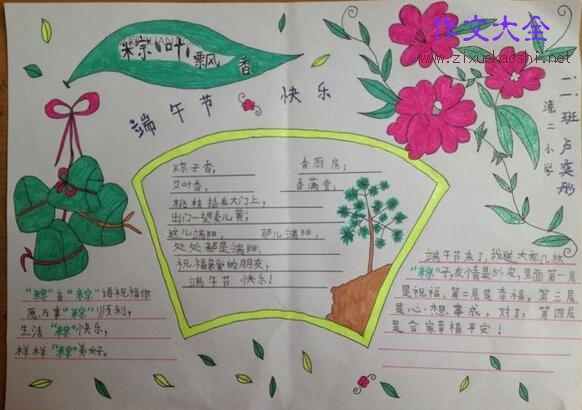 粽叶飘香
作文大全
www.zixuekaoshi.net
端午节 快乐
二一班卢奕彤
港二小学
粽子香, 香厨房;
艾叶香, 香满堂;
桃枝插在大门上,
出门一望麦儿黄;
这儿端阳, 那儿端阳,
处处都是端阳.
祝福亲爱的朋友,
端午节快乐!
"粽"言"粽"语祝福你
愿万事"粽"顺利,
生活"粽"快乐,
样样"粽"美好。
端午节来了,我送大家几粒
"粽"子,友情是外皮,里面第一层
是祝福,第二层是幸福,第三层
是心想事成,对了,第四层
是合家幸福平安!